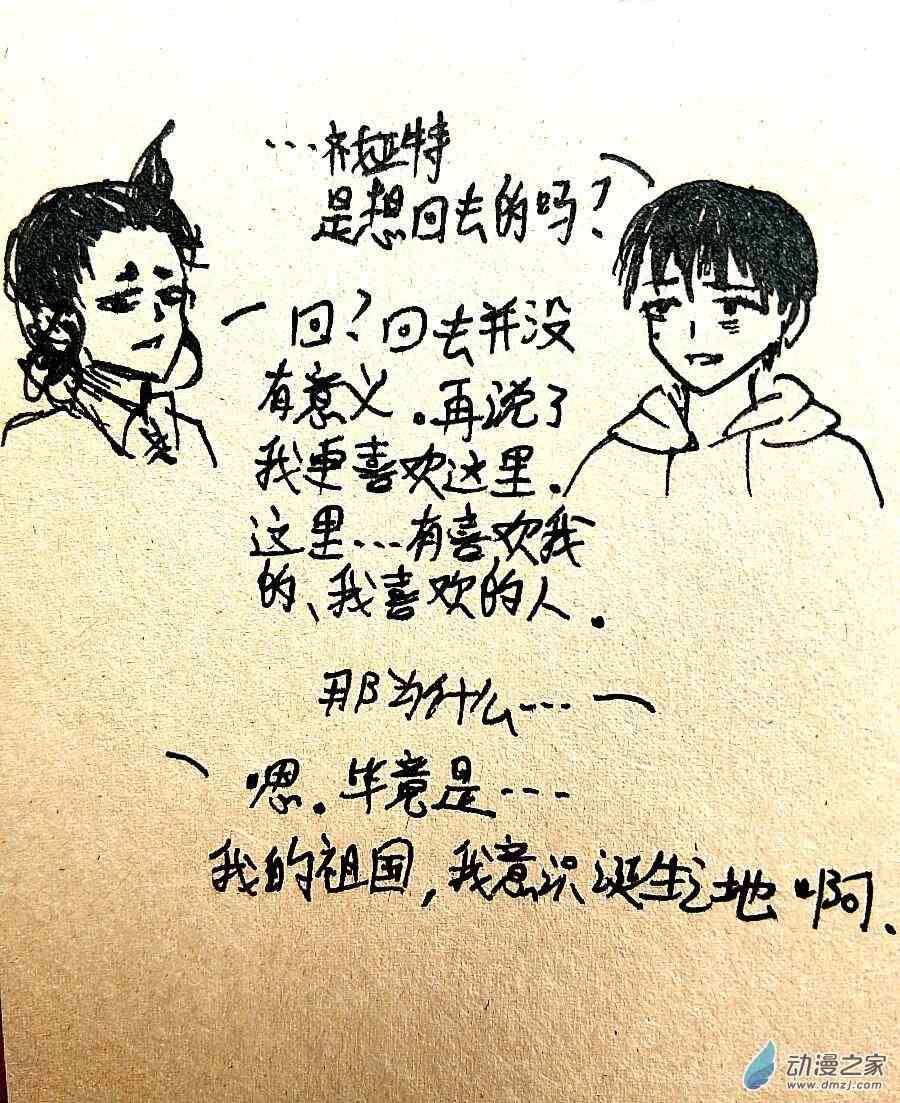 …祾亚特
是想回去的吗?
回?回去并没
有意义.再说了
我更喜欢这里.
这里…有喜欢我
的、我喜欢的人.
那为什么…
嗯.毕竟是…
我的祖国,我意识诞生之地啊.
动漫之家
www.dmzj.com